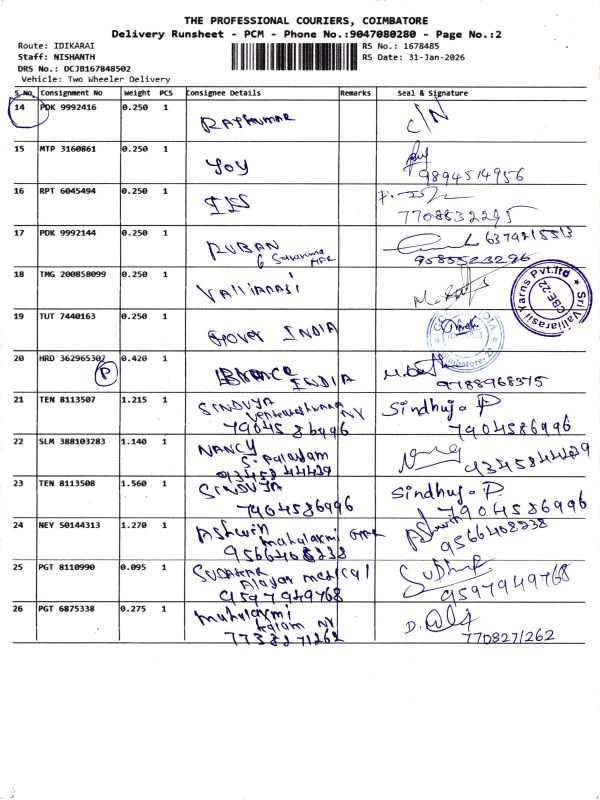 THE PROFESSIONAL COURIERS, COIMBATORE
Delivery Runsheet - PCM - Phone No.:9047080280 - Page No.:2
Route: IDIKARAI
RS No.: 1678485
Staff: NISHANTH
RS Date: 31-Jan-2026
DRS No.: DCJB167848502
Vehicle: Two Wheeler Delivery
S No. Consignment No Weight PCS Consignee Details Remarks Seal & Signature
14 PDK 9992416 0.250 1 Rajkumar C/N
15 MTP 3160861 0.250 1 Joy
9894514956
16 RPT 6045494 0.250 1
7708832295
17 PDK 9992144 0.250 1 RUBAN 6374215513
9585523296
18 TMG 200858099 0.250 1 Valliarasi
Sri Valliarasii Yarns Pvt.ltd
CBE-22
19 TUT 7440163 0.250 1 Gover INDIA
Coimbatore-22
20 HRD 362965307 0.420 1 INDIA
P
9788968375
21 TEN 8113507 1.215 1 SINDUYA Sindhuja P
NY
7904586996 7904586996
22 SLM 388103283 1.140 1 NANCY
S. Palayam
9345844429 9345844429
23 TEN 8113508 1.560 1 SINDUJA Sindhuja P.
7904586996 7904586996
24 NEY 50144313 1.270 1 Ashwin mahalaxmi Ashwin
9566408238 9566408238
25 PGT 8110990 0.095 1 SUDAKAR Alayam medical Sudhakar
9597949768 9597949768
26 PGT 6875338 0.275 1 mahalaxmi
NY
7708271262 7708271262